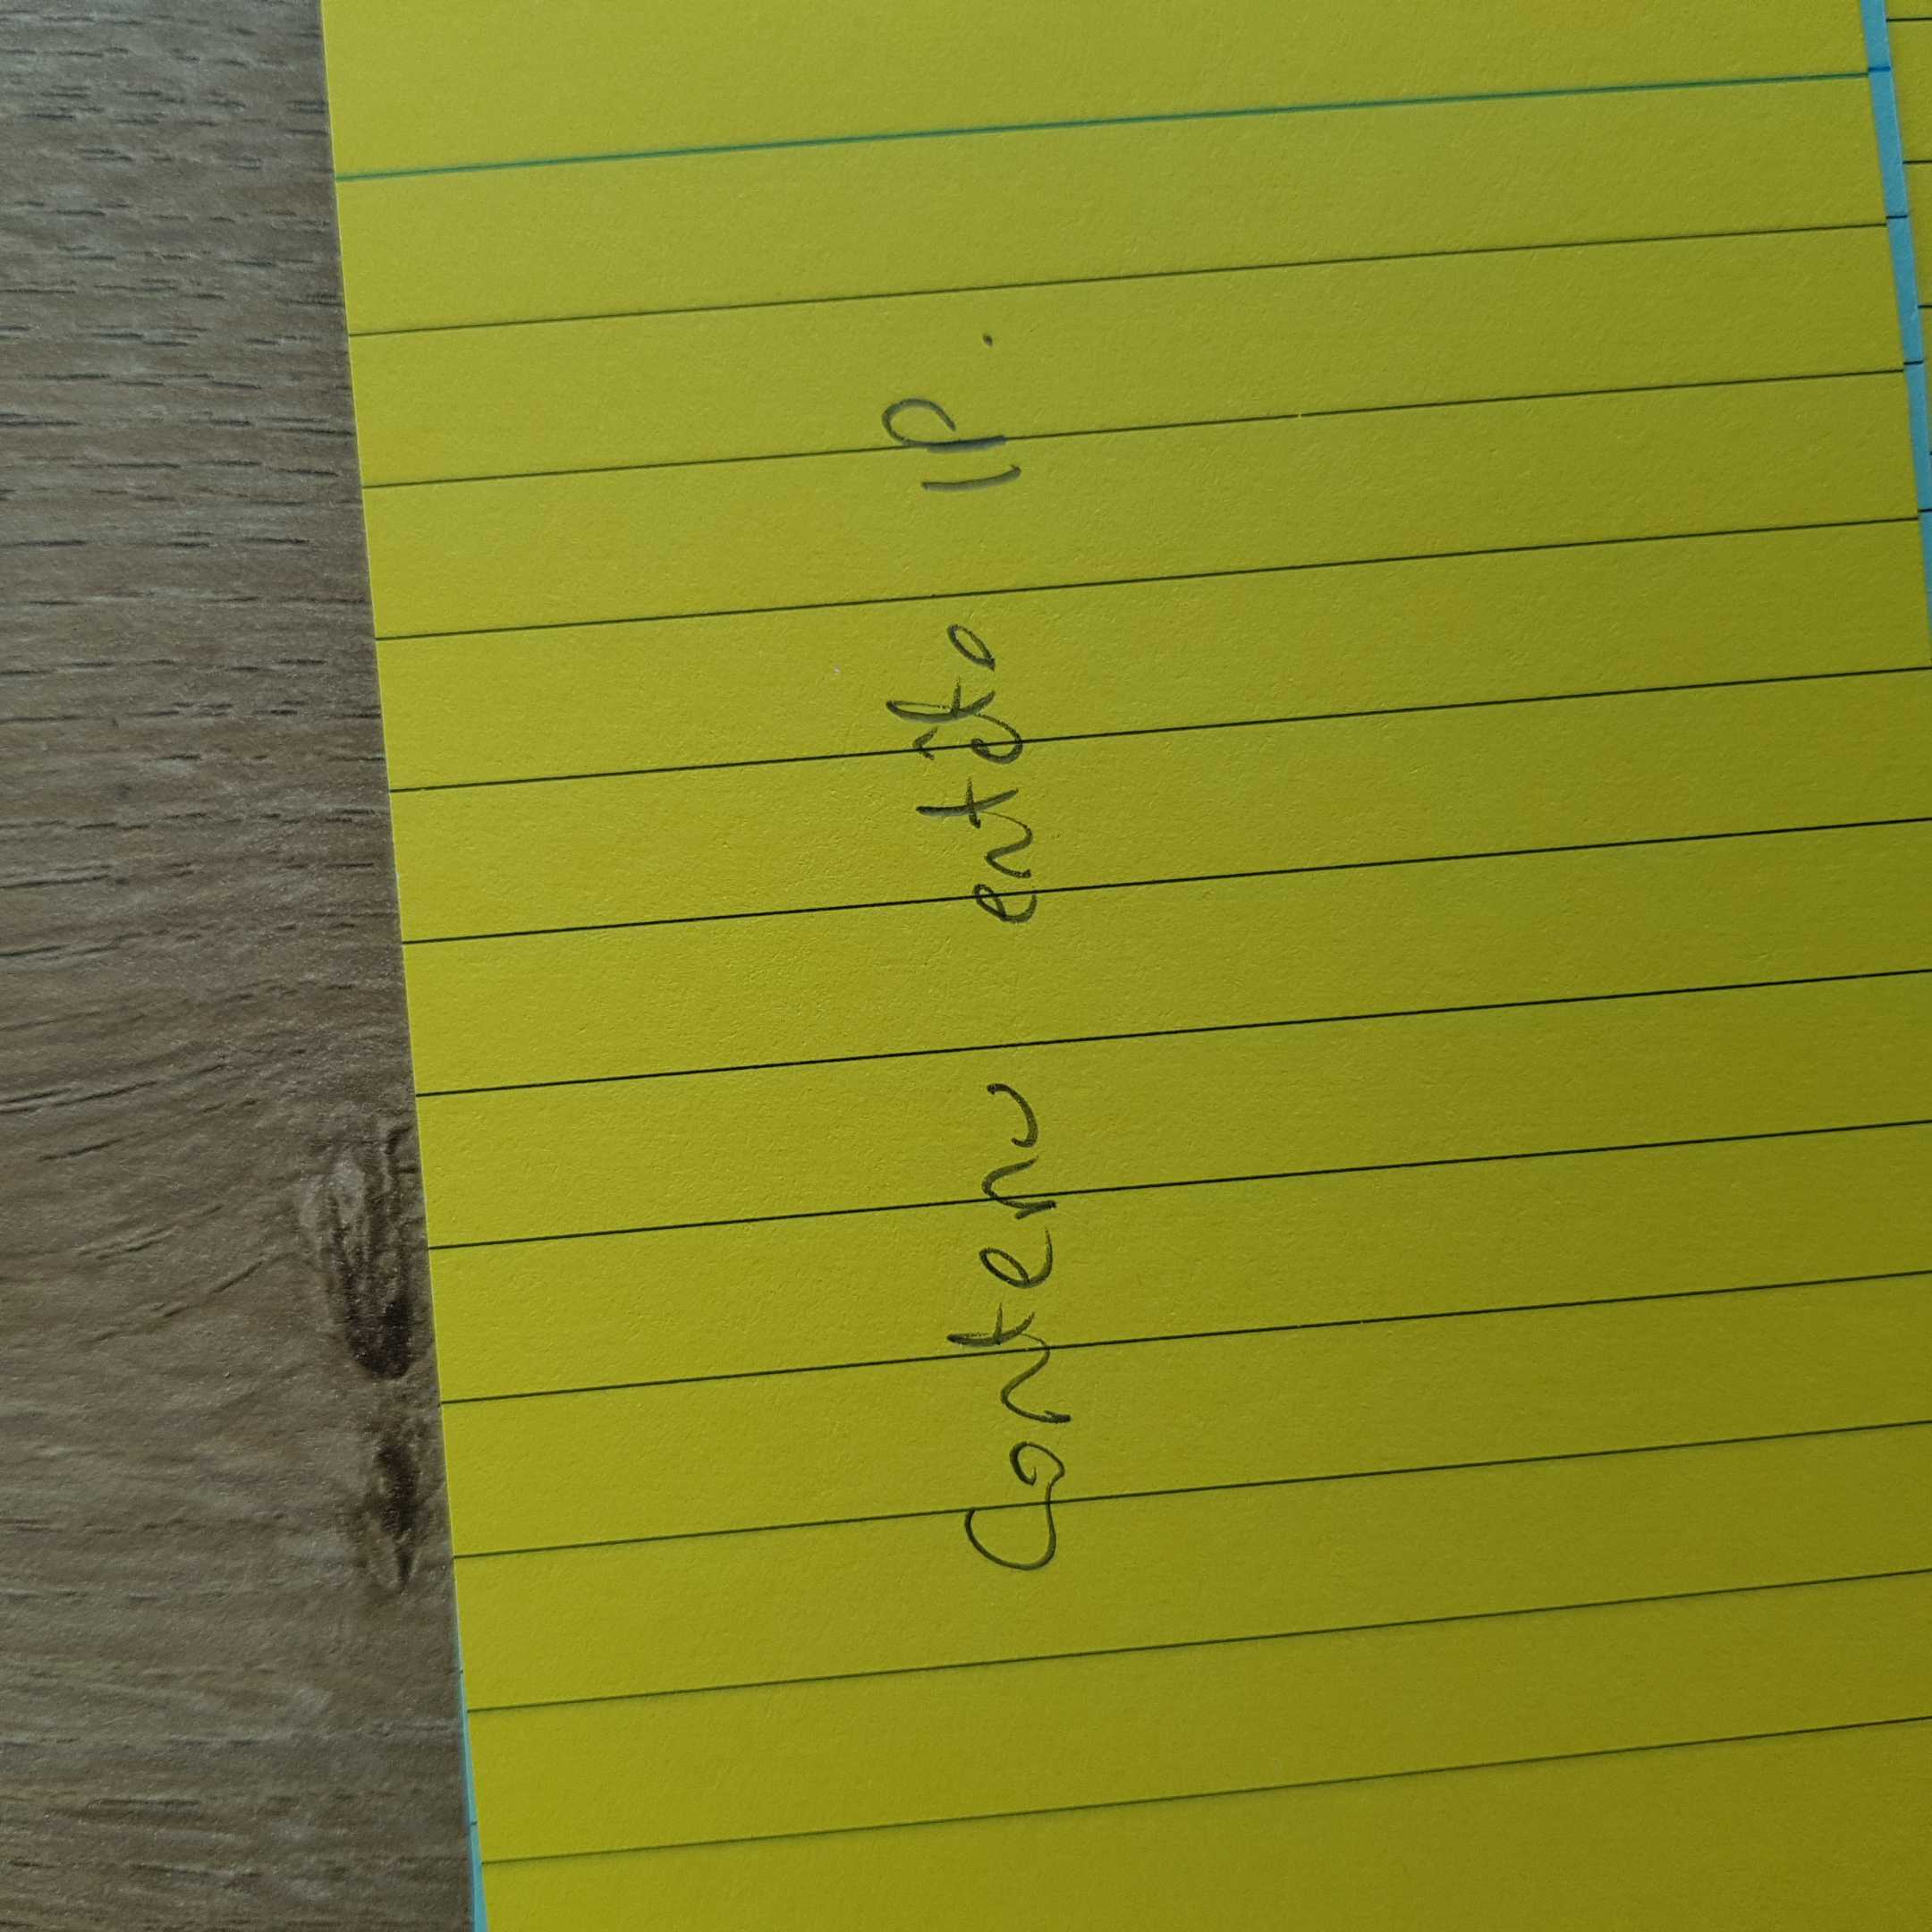 Contenu entête IP.